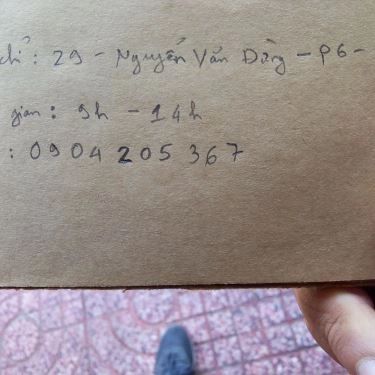 chỉ: 29 - Nguyễn Văn Dừng - P6 -
gian: 9h - 14h
: 0904 205 367